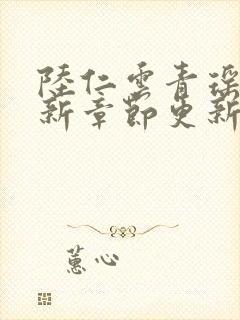 陸仁雲青瑤
新章節更新
蕙心